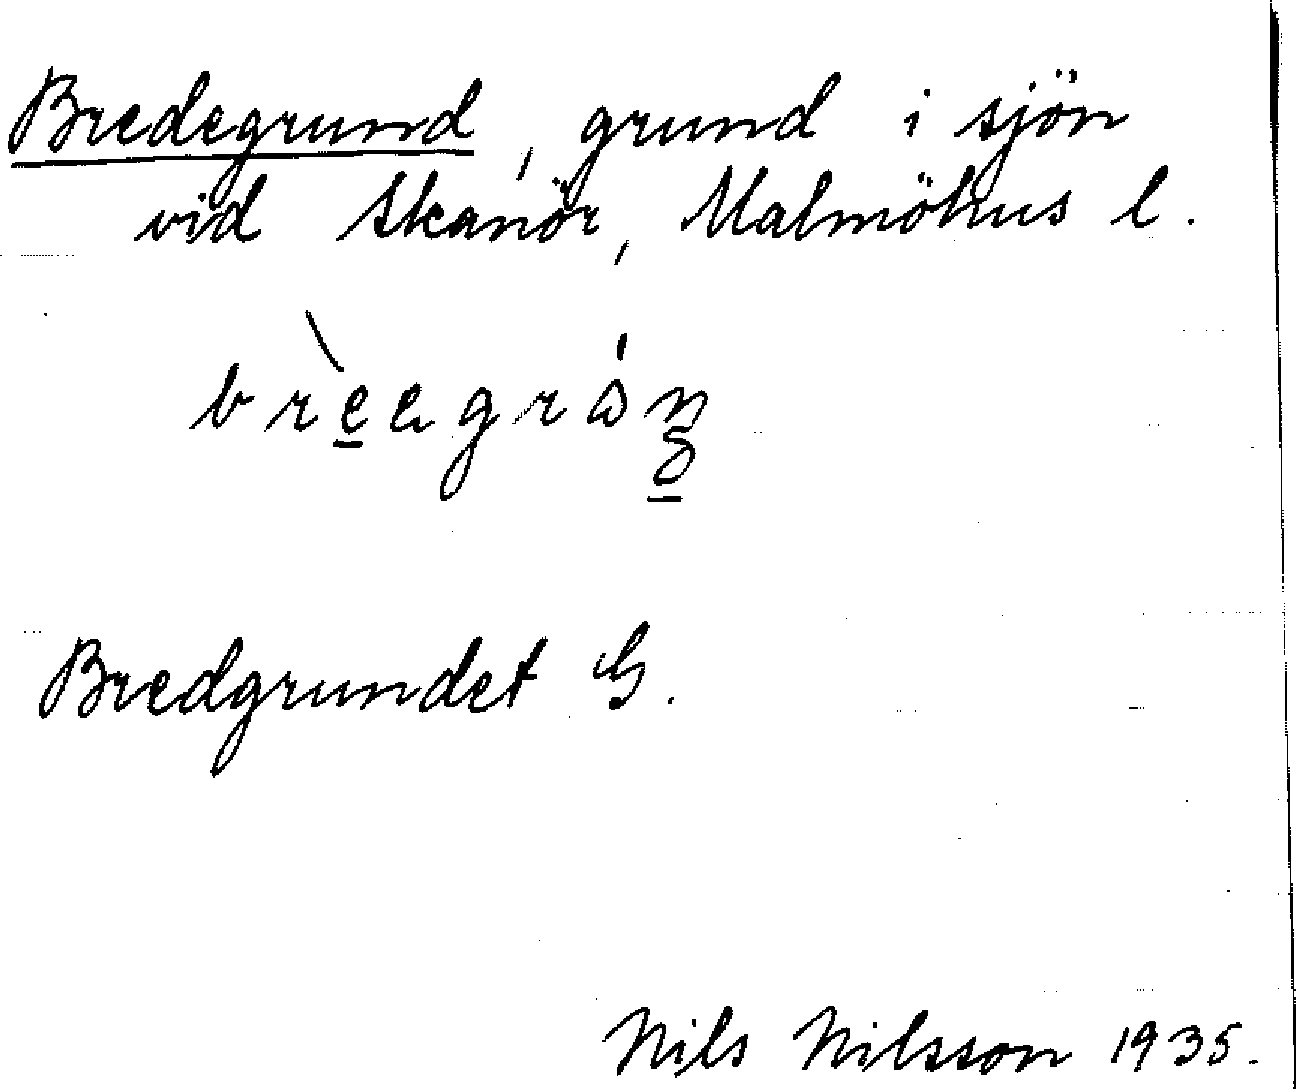 Bredegrund, grund i sjön
vid Skanör, Malmöhus l.
Bredgrundet G.
Nils Nilsson 1935.